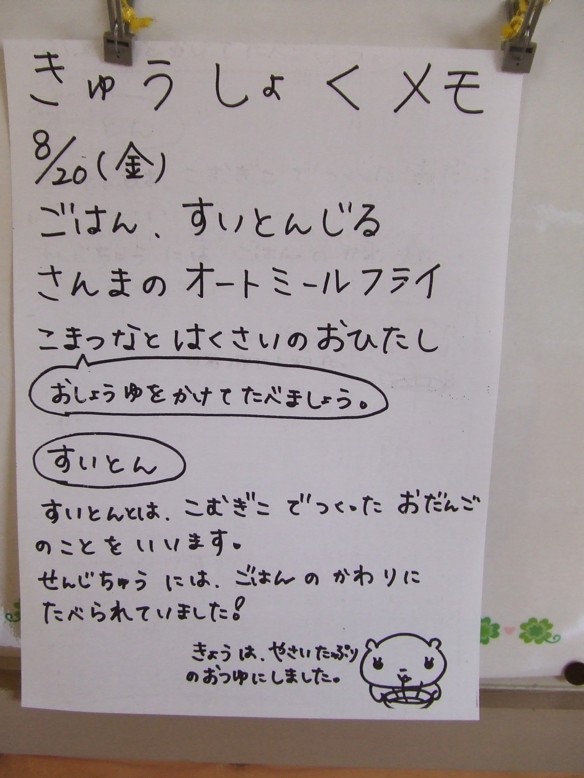 きゅうしょくメモ
8/20(金)
ごはん、すいとんじる
さんまのオートミールフライ
こまつなとはくさいのおひたし
おしょうゆをかけてたべましょう。
すいとん
すいとんとは、こむぎこでつくったおだんご
のことをいいます。
せんじちゅうには、ごはんのかわりに
たべられていました!
きょうは、やさいたっぷり
のおつゆにしました。